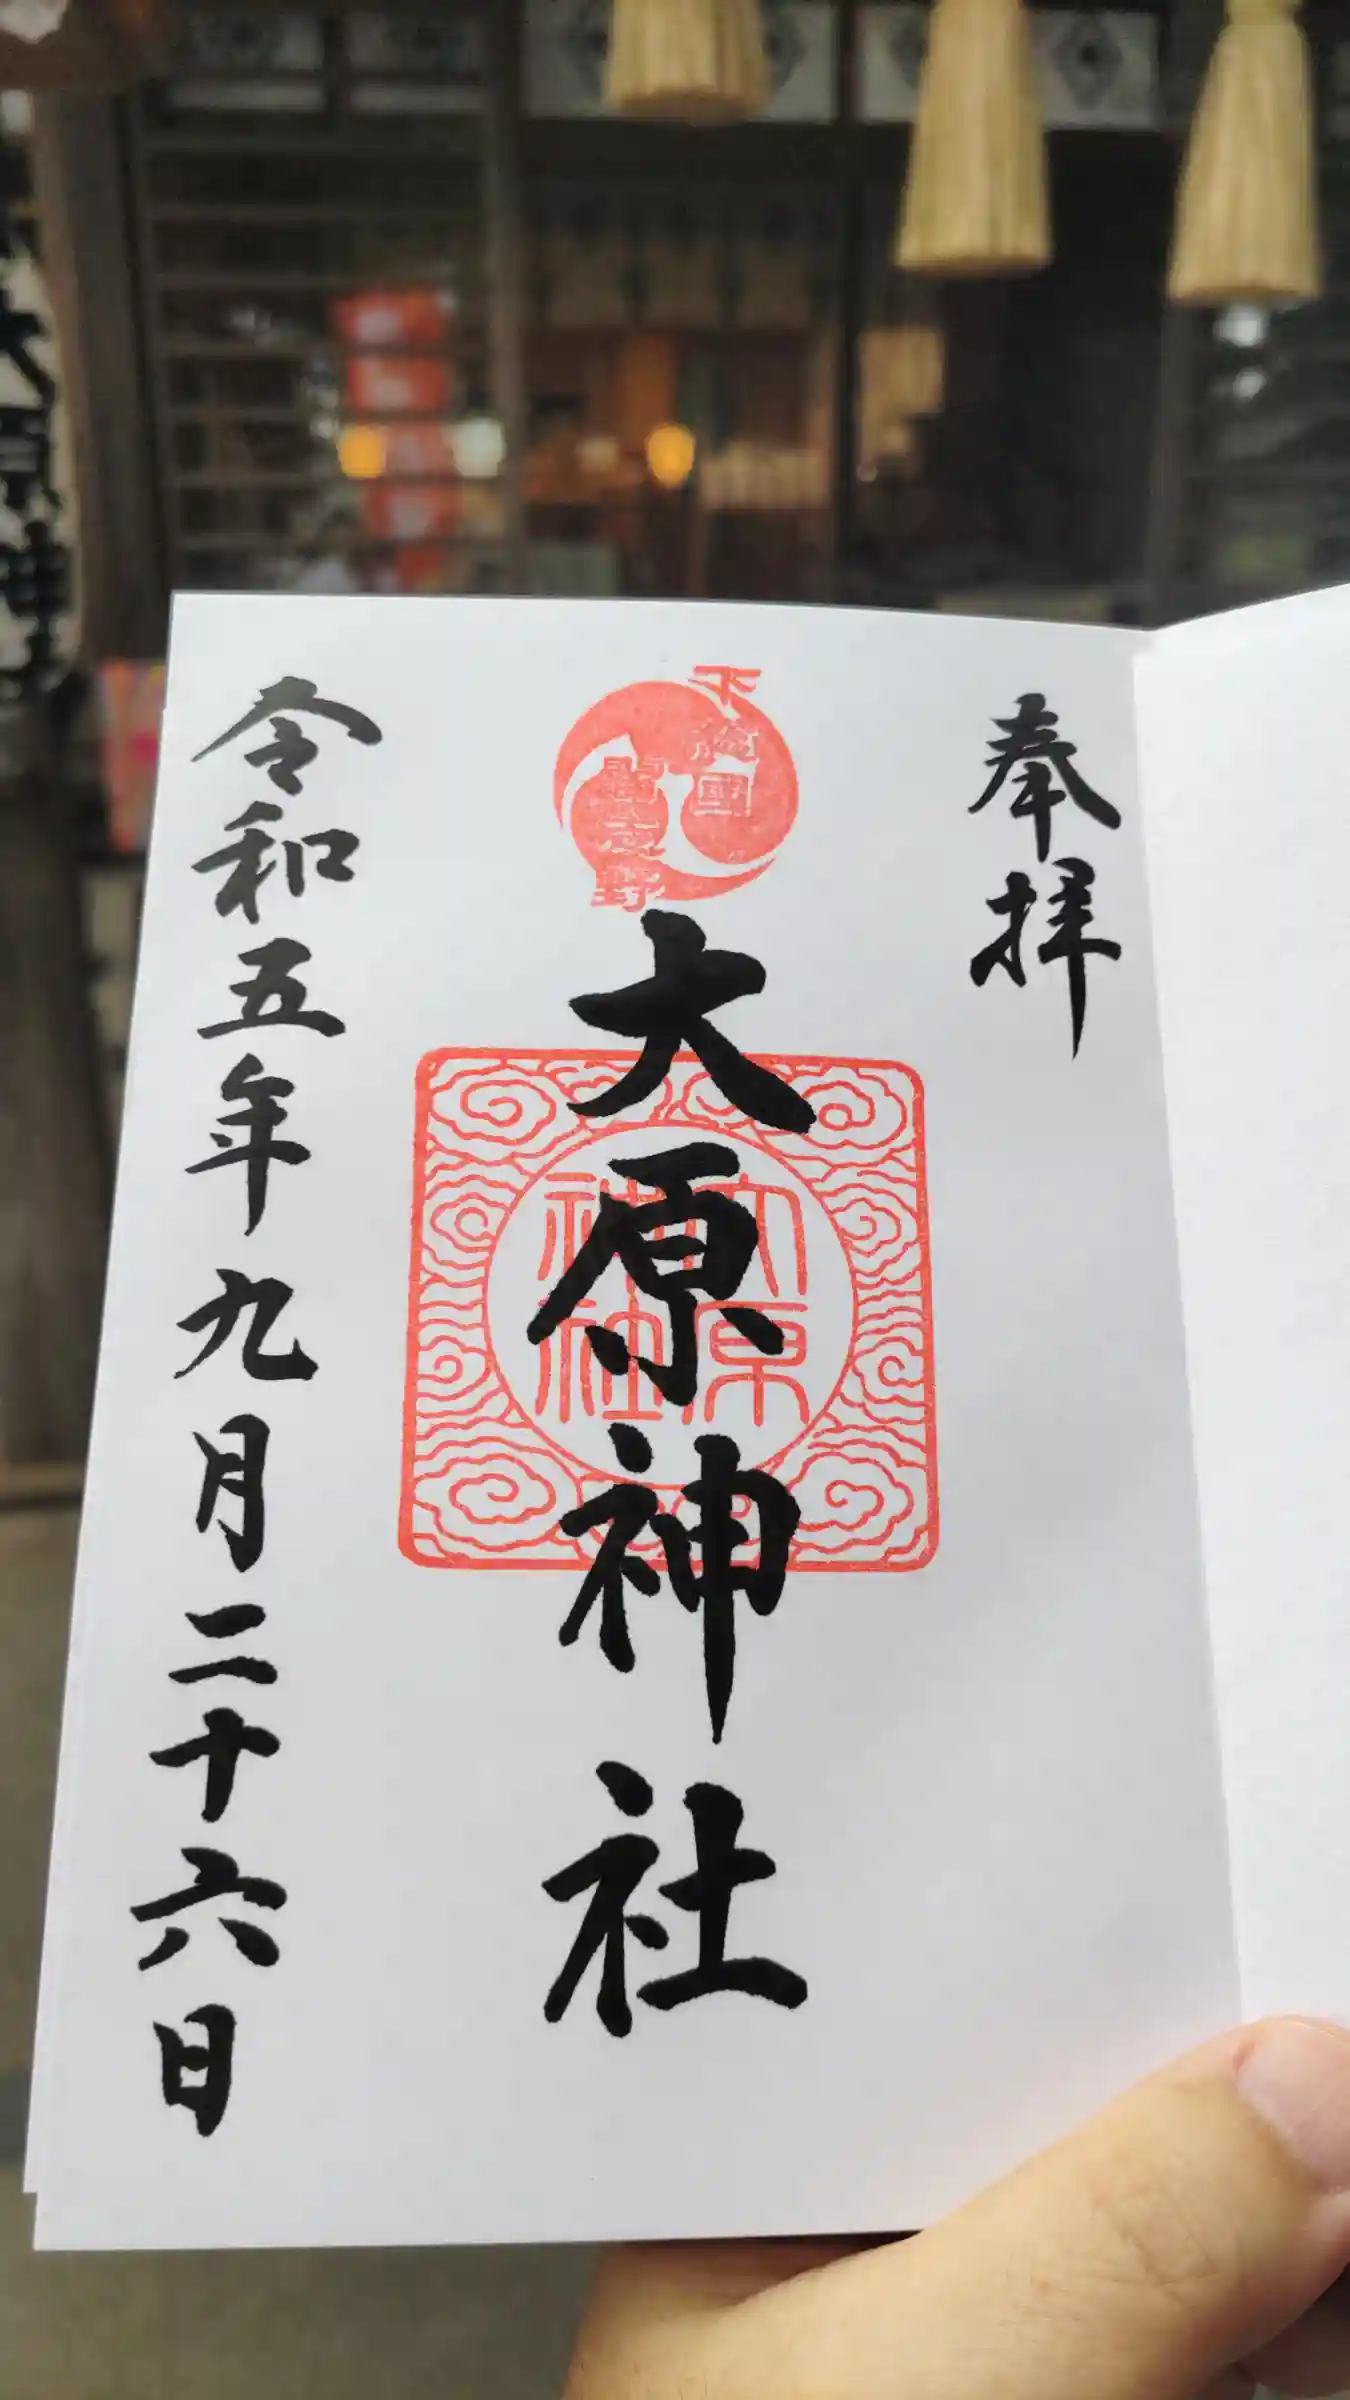 奉拝
下総國
習志野
大原神社
大原
神社
令和五年九月二十六日